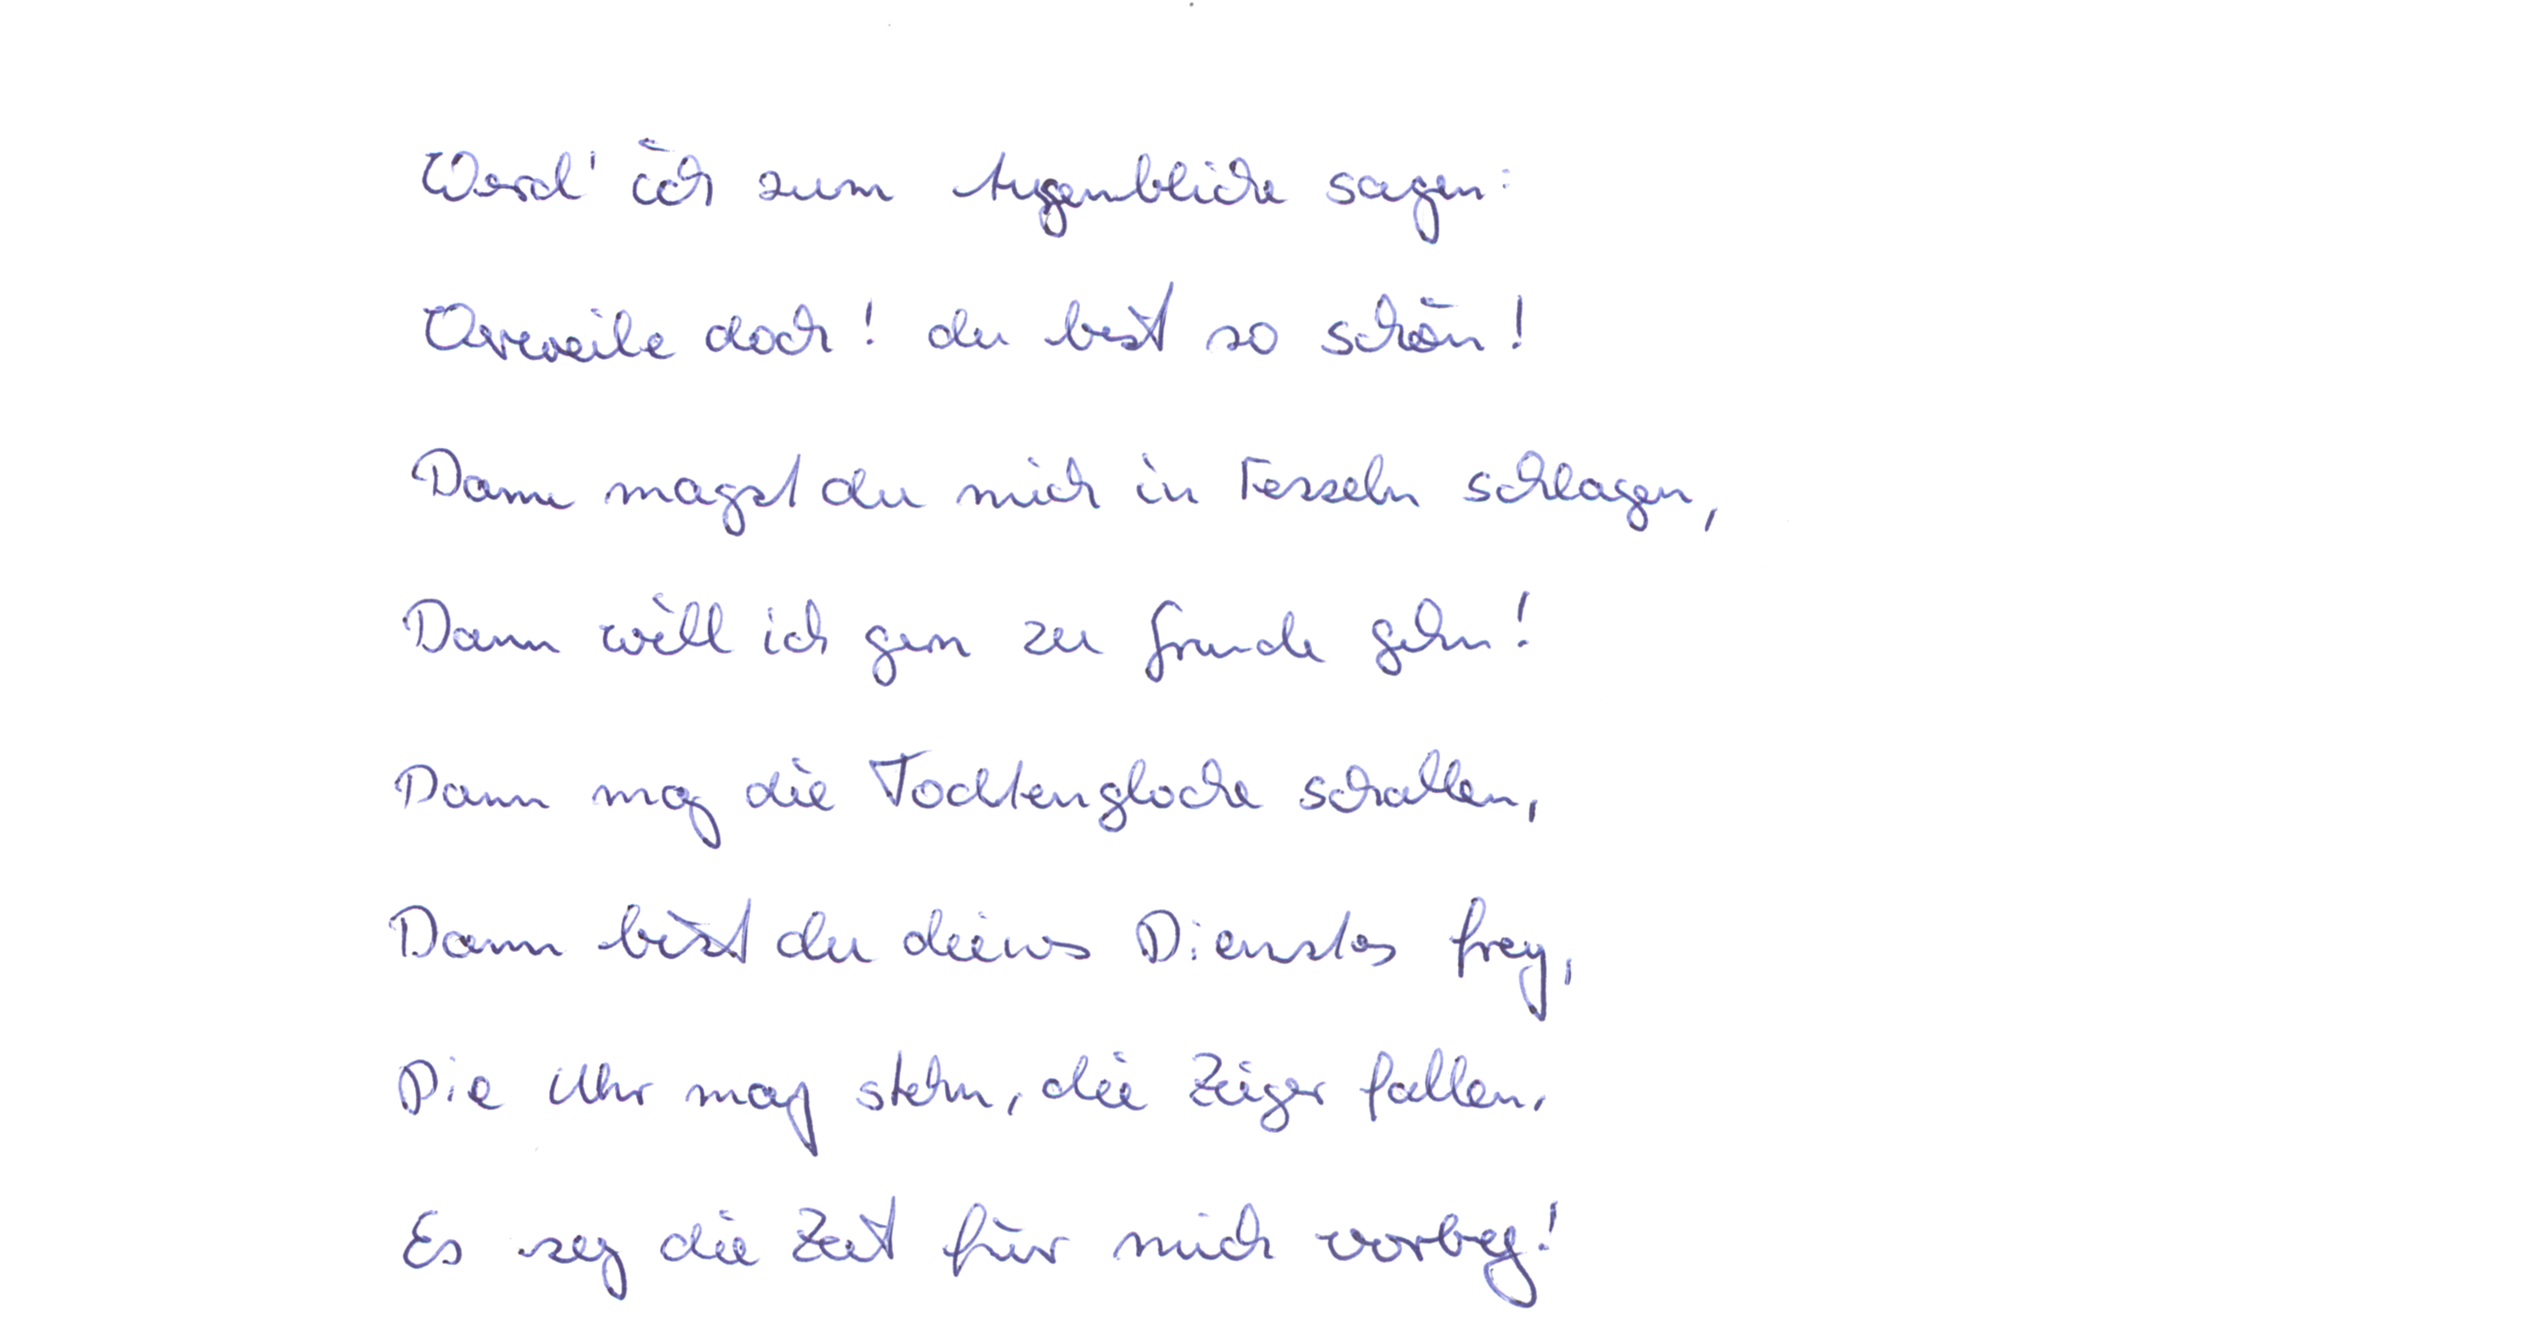 Werd' ich zum Augenblicke sagen:
Verweile doch! du bist so schön!
Dann magst du mich in Fesseln schlagen,
Dann will ich gern zu Grunde gehn!
Dann mag die Todtenglocke schallen,
Dann bist du deines Dienstes frey,
Die Uhr mag stehn, die Zeiger fallen,
Es sey die Zeit für mich vorbey!